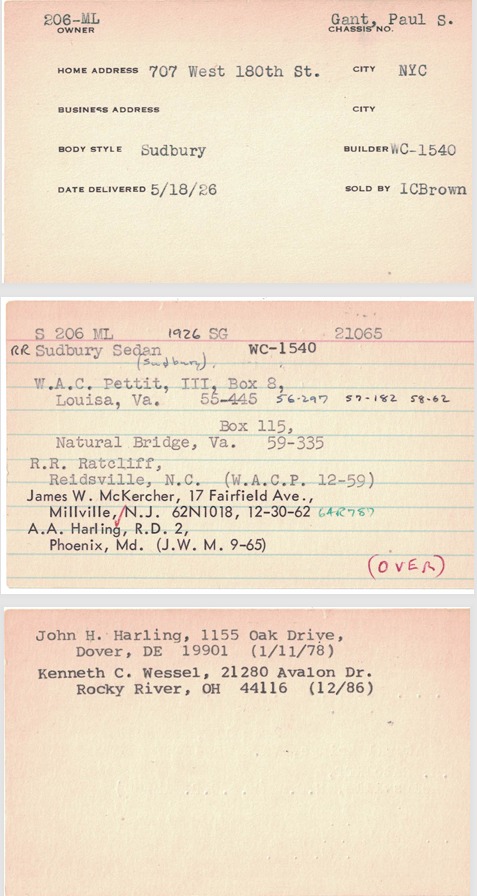 206-ML Gant, Paul S.
OWNER CHASSIS NO.
HOME ADDRESS 707 West 180th St. CITY NYC
BUSINESS ADDRESS CITY
BODY STYLE Sudbury BUILDER WC-1540
DATE DELIVERED 5/18/26 SOLD BY ICBrown
S 206 ML 1926 SG 21065
RR Sudbury Sedan WC-1540
(Sudbury)
W.A.C. Pettit, III, Box 8,
Louisa, Va. 55-445 56-297 57-182 58-62
Box 115,
Natural Bridge, Va. 59-335
R.R. Ratcliff,
Reidsville, N.C. (W.A.C.P. 12-59)
James W. McKercher, 17 Fairfield Ave.,
Millville, N.J. 62N1018, 12-30-62 64R787
A.A. Harling, R.D. 2,
Phoenix, Md. (J.W. M. 9-65)
(OVER)
John H. Harling, 1155 Oak Drive,
Dover, DE 19901 (1/11/78)
Kenneth C. Wessel, 21280 Avalon Dr.
Rocky River, OH 44116 (12/86)